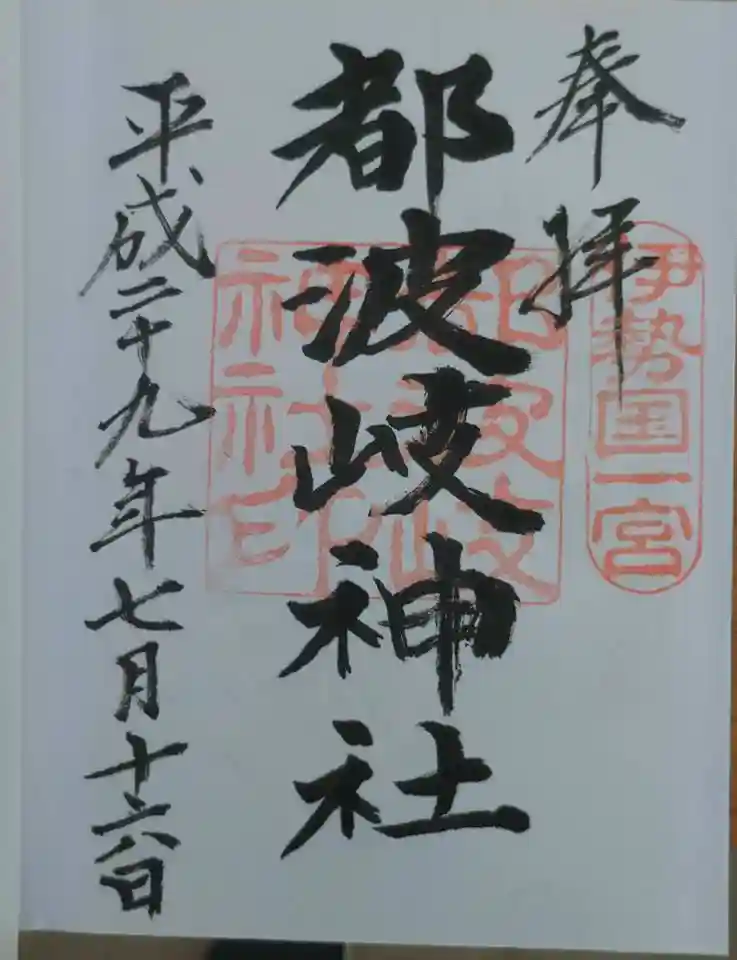 奉拝
伊勢国一宮
都波岐神社
都波岐
神社印
平成二十九年七月十六日